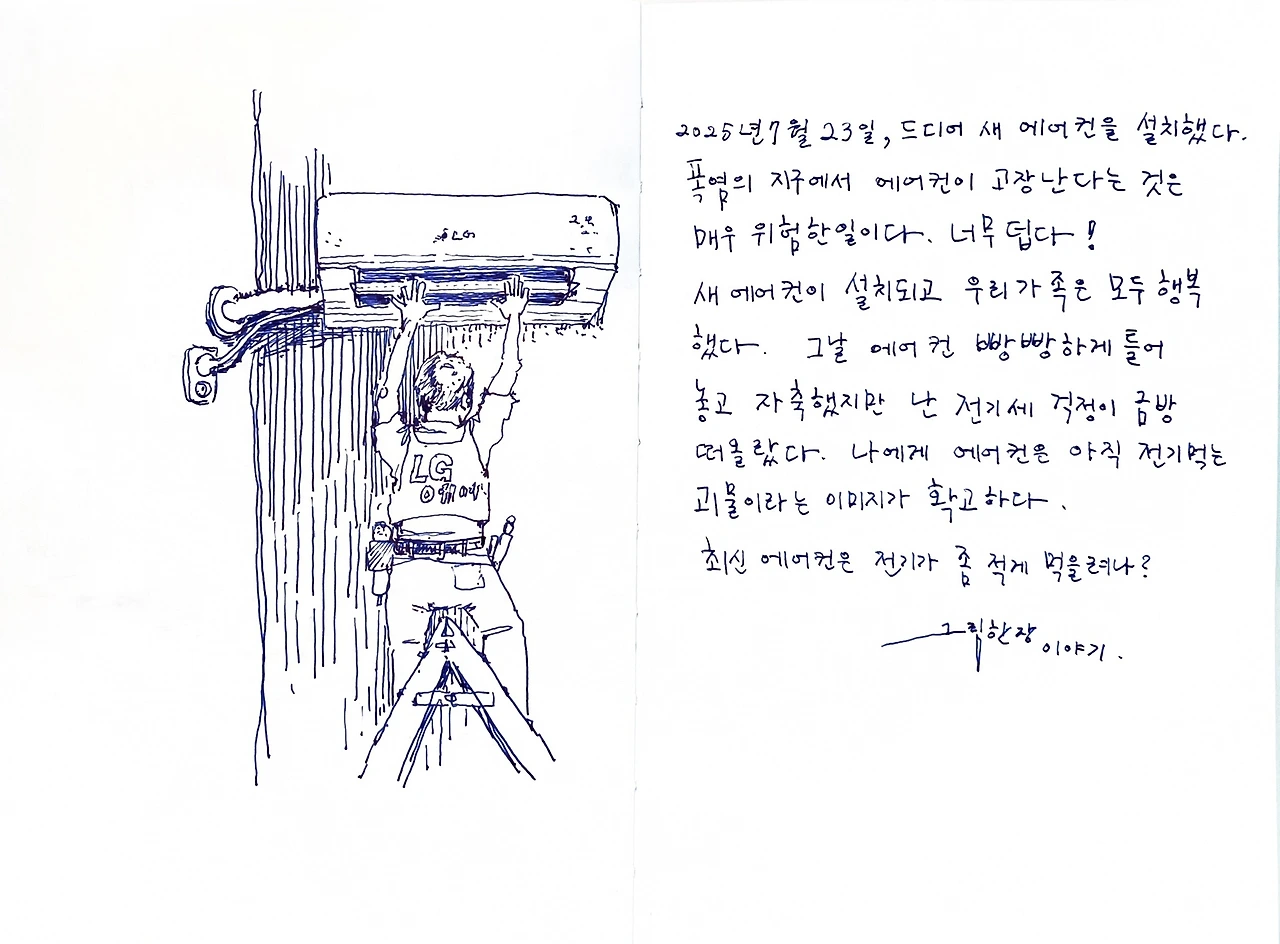 LG
LG
2025년 7월 23일, 드디어 새 에어컨을 설치했다.
폭염의 지구에서 에어컨이 고장난다는 것은
매우 위험한일이다. 너무 덥다!
새 에어컨이 설치되고 우리가족은 모두 행복
했다. 그날 에어컨 빵빵하게 틀어
놓고 자축했지만 난 전기세 걱정이 금방
떠올랐다. 나에게 에어컨은 아직 전기먹는
괴물이라는 이미지가 확고하다.
최신 에어컨은 전기가 좀 적게 먹을려나?
그림한장 이야기.